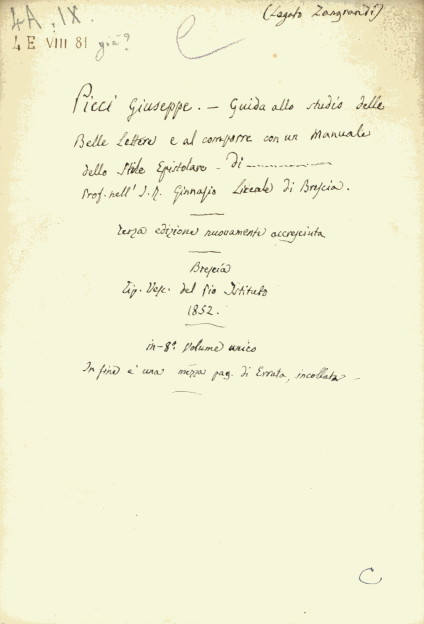 4A. IX.
(Legato Zangrandi)
4 E VIII 81 già?
Picci Giuseppe. — Guida allo studio delle
Belle Lettere e al comporre con un Manuale
dello Stile Epistolare - di
Prof. nell' I. R. Ginnasio Liceale di Brescia.
Terza edizione nuovamente accresciuta
Brescia
Tip. Vesc. del Pio Istituto
1852.
in-8° Volume unico
In fine è una mezza pag. di Errata, incollata
C